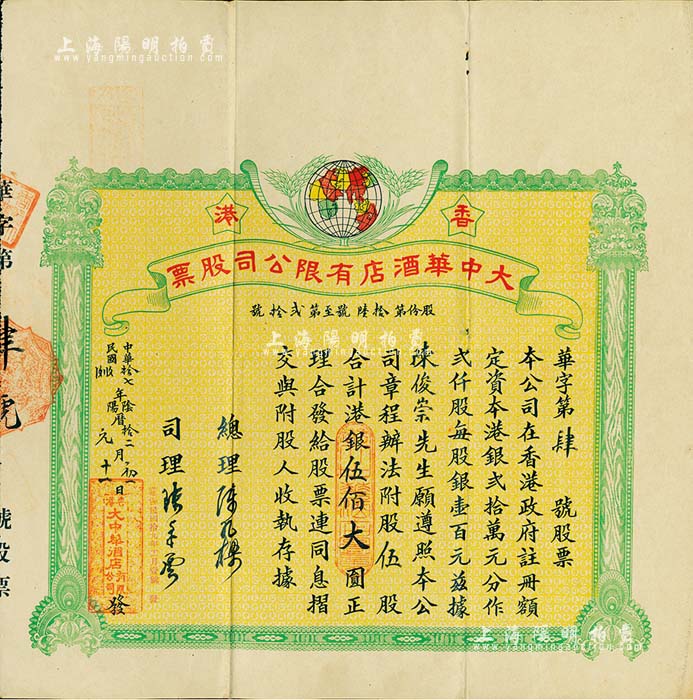 上海陽明拍賣
www.yangmingauction.com
香港
大中華酒店有限公司股票
股份第拾陸號至第弍拾號
華字第肆號股票
本公司在香港政府註冊額
定資本港銀弍拾萬元分作
弍仟股每股銀壹百元茲據
陳俊崇先生願遵照本公
司章程辦法附股伍股
合計港銀伍佰大圓正
理合發給股票連同息摺
交與附股人收執存據
總理
司理
中華民國拾七年
陰陽曆
十二月初一日
元月十一日
發
香港
大中華酒店
有限公司
華字第肆號
號股票
上海陽明拍賣
www.yangmingauction.com
上海陽明拍賣
www.yangmingauction.com